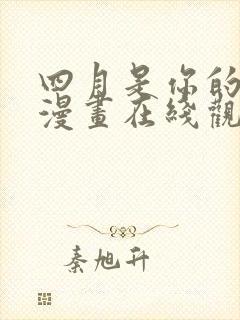 四月是你的
漫畫在綫觀
秦旭升